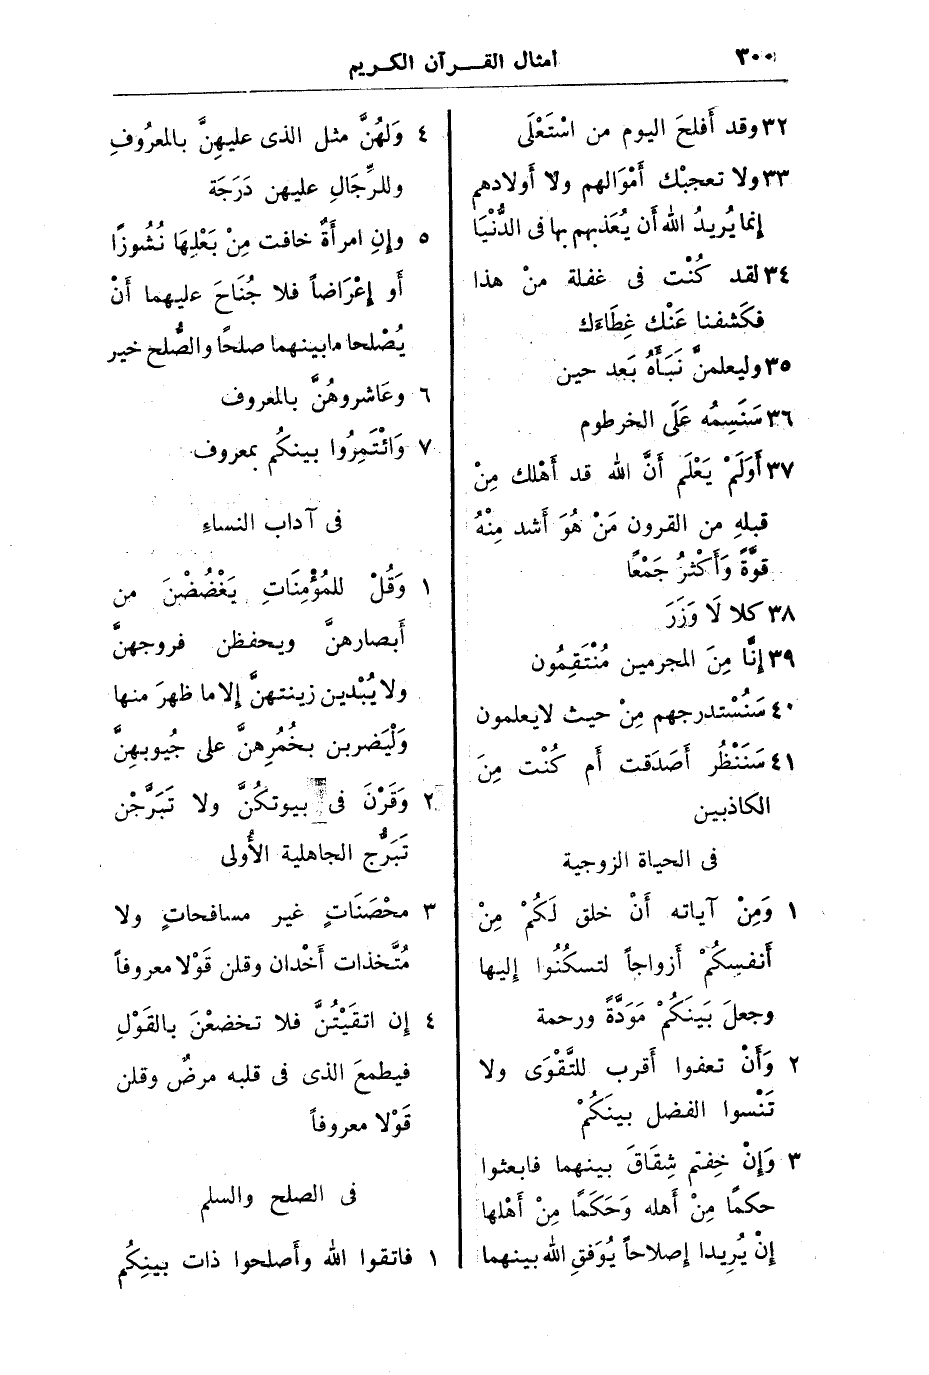 ٣٠٠
امثال القرآن الكريم
٣٢ وقد أَفلحَ اليوم من اسْتَعْلَى
٣٣ ولا تعجبْك أَمْوَالهم ولا أَولادهم
إِنما يُريدُ الله أَن يُعَذبهم بها فى الدُّنْيَا
٣٤ لقد كُنْت فى غفلة منْ هذا
فكَشفنا عَنْك غِطَاءَك
٣٥ وليعلمنَّ نَبَأَهُ بَعد حين
٣٦ سَنَسِمُه عَلَى الخرطوم
٣٧ أَوَلَمْ يَعْلَم أَنَّ الله قد أَهْلك مِنْ
قبلهِ من القرون مَنْ هُوَ أَشد مِنْهُ
قوَّةً وَأَكْثرُ جَمْعًا
٣٨ كلا لَا وَزَرَ
٣٩ إِنَّا مِنَ المجرمين مُنْتَقِمُون
٤٠ سَنُسْتدرجهم مِنْ حيث لايعلمون
٤١ سَنَنْظُر أَصَدَقت أَم كُنْت مِنَ
الكاذبين
فى الحياة الزوجية
١ وَمِنْ آياته أَنْ خلق لَكُمْ مِنْ
أَنفسِكُمْ أَزواجاً لتسكُنُوا إِليها
وجعلَ بَينَكُمْ مَوَدَّةً ورحمة
٢ وَأَنْ تعفوا أَقرب للتَّقْوَى ولا
تَنْسوا الفضل بينَكُمْ
٣ وَإِنْ خِفتم شِقَاقَ بينهما فابعثوا
حكمًا مِنْ أَهله وَحَكَمًا مِنْ أَهْلها
إِنْ يُرِيدا إِصلاحاً يُوَفقِ الله بينهما
٤ وَلَهُنَّ مثل الذى عليهِنَّ بالمعرُوفِ
وللرِّجَالِ عليهن دَرَجَة
٥ وإِنِ امرأَةٌ خافت مِنْ بَعْلِهَا نُشُوزًا
أَو إِعْرَاضاً فلا جُنَاحَ عليهما أَنْ
يُصْلحا مابينهما صلحًا والصُّلح خير
٦ وعَاشروهُنَّ بالمعروف
٧ وَائْتَمِرُوا بينكُم بمعروف
فى آداب النساءِ
١ وَقُلْ للمُؤْمِنَاتِ يَغْضُضْنَ من
أَبصارهنَّ ويحفظن فروجهنَّ
ولا يُبْدين زينتهنَّ إِلا ما ظهرَ منها
وَلْيَضربن بخُمُرِهنَّ على جُيوبهِنَّ
٢ وَقَرْنَ فى بيوتكُنَّ ولا تَبَرَّجْن
تَبَرُّج الجاهلية الأُولى
٣ محْصَنَاتٍ غير مسافحاتٍ ولا
مُتَّخذات أَخْدان وقلن قَوْلا معروفاً
٤ إِن اتقَيْتُنَّ فلا تخضعْنَ بالقَوْلِ
فيطمعَ الذى فى قلبه مرضٌ وقلن
قَوْلا معروفاً
فى الصلح والسلم
١ فاتقوا الله وأَصلحوا ذات بينِكُم